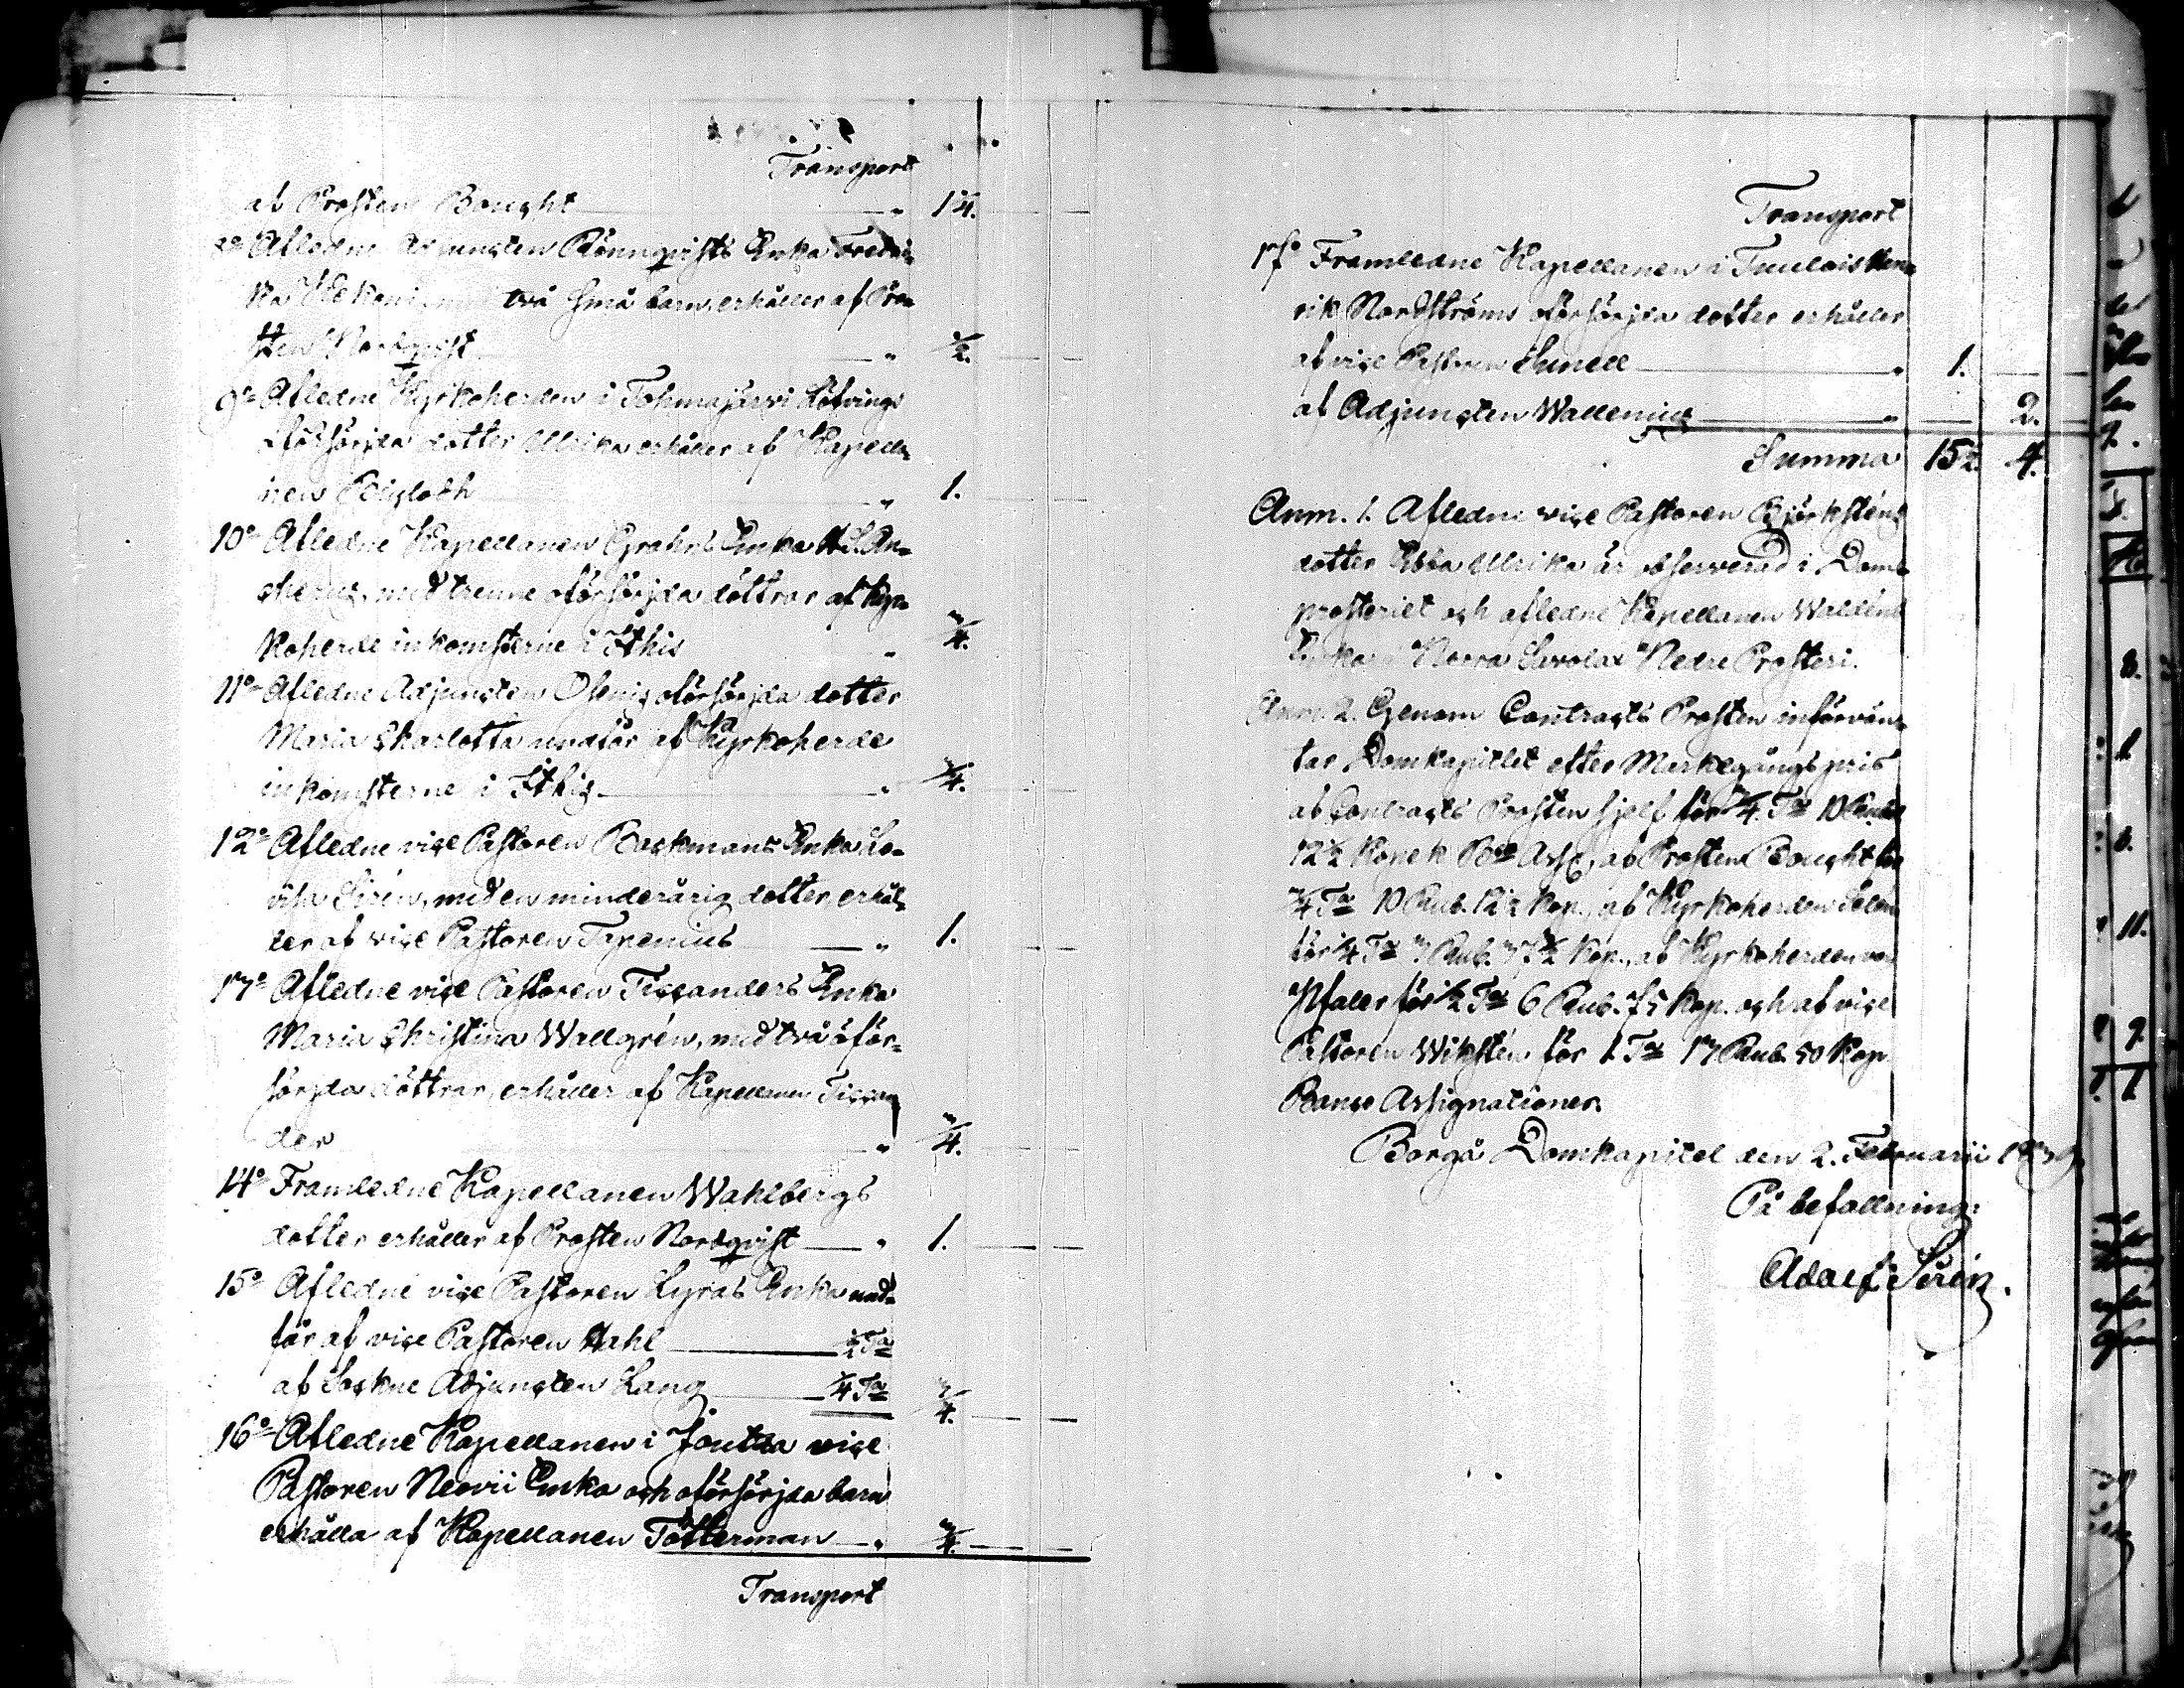 Transport
af Prosten Bought " 1¼.
8o Afledne Adjuncten Rönnqvists Enka Fredri-
ka två små barn, erhåller af Pro-
sten Nordqvist " ½.
9o Afledne Kyrkoherden i Tohmajärvi Löfvings
oförsörjda dotter Ulrika erhåller af Kapella-
nen " 1.
10o Afledne Kapellanen Grahns Enka H. S. An-
med trenne oförsörjda döttrar af Kyr-
koherde inkomsterne i Ithis " ¾.
11o Afledne Adjuncten oförsörjda dotter
Maria Charlotta undfår af Kyrkoherde
inkomsterne i Ithis "
12o Afledne vice Pastoren Backmans Enka Lo-
visa Sirén, med en minderårig dotter, erhål-
ler af vice Pastoren Tapenius " 1.
13o Afledne vice Pastoren Tissanders Enka
Maria Christina Wallgrén, med två oför-
sörjda döttrar, erhåller af Kapellanen Tissan-
der " ¾.
14o Framledne Kapellanen Wahlbergs
dotter erhåller af Prosten Nordqvist " 1.
15o Afledne vice Pastoren Lyras Enka und-
får af vice Pastoren Stahl ½ Ta
af Sockne Adjuncten Lang ¼ Ta ¾.
16o Afledne Kapellanen i Joutsa vice
Pastoren Neovii Enka och oförsörjda barn
erhålla af Kapellanen Tötterman " ¾.
Transport
Transport
17o Framledne Kapellanen i Tuulois Hen-
rik Nordströms oförsörjda dotter erhåller
af vice Pastoren Sunell " 1.
af Adjuncten Wallenius " 2.
Summa 15½. 4.
Anm. 1. Afledne vice Pastoren Björksténs
dotter Ebba Ulrika är observerad i Dom-
prosteriet och afledne Kapellanen Waldéns
Enka i Norra Savolax Nedre Prosteri.
Anm. 2. Genom Contracts Prosten införvän-
tar Domkapitlet efter Markegångspris
af Contracts Prosten sjelf för ¾. Ta 10 Rubel
12½ Kopek Bco Ass, af Prosten Bought för
¾ Ta 10 Rub. 12½ Kop., af Kyrkoherden
för ¼ Ta 3 Rub. 37½ Kop., af Kyrkoherden von
Pfaler för ½ Ta 6 Rub. 75 Kop. och af vice
Pastoren Wikstén för 1 Ta 13 Rub. 50 Kop
Banco Assignationer.
Borgå Domkapitel den 2. Februarii 1839
På befallning:
Adolf Sirén.